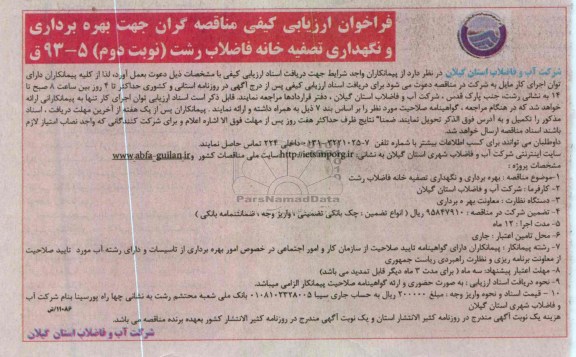 فراخوان ارزیابی کیفی مناقصه گران جهت بهره برداری
و نگهداری تصفیه خانه فاضلاب رشت (نوبت دوم) ۵-۹۳ ق
شرکت آب و فاضلاب استان گیلان در نظر دارد از پیمانکاران واجد شرایط جهت دریافت اسناد ارزیابی کیفی با مشخصات ذیل دعوت بعمل آورد، لذا از کلیه پیمانکاران دارای
توان اجرای کار مایل به شرکت در مناقصه دعوت می شود برای دریافت اسناد ارزیابی کیفی پس از درج آگهی در روزنامه استانی و کشوری حداکثر تا ۴ روز بین ساعت ۸ صبح تا
۱۴ به نشانی رشت جنب پارک قدس ، شرکت آب و فاضلاب استان گیلان ، دفتر قراردادها مراجعه نمایند. قابل ذکر است اسناد ارزیابی توان اجرای کار تنها به پیمانکارانی ارائه
خواهد شد که در هنگام مراجعه ، گواهینامه صلاحیت مورد نظر را بر اساس بند ۷ ذیل به همراه داشته و ارائه نمایند . پیمانکاران پس از یک هفته از آخرین مهلت دریافت ، اسناد
مذکور را تکمیل و به آدرس فوق الذکر تحویل نمایند. ضمنا" نتایج ظرف حداکثر هفت روز پس از مهلت فوق الا اشاره اعلام و برای شرکت کنندگانی که واجد نصاب امتیاز لازم
باشند اسناد مناقصه ارسال خواهد شد.
داوطلبان می توانند برای کسب اطلاعات بیشتر با شماره تلفن ۷-۳۲۲۱۰۲۵-۰۱۳۱ داخلی ۲۲۴ تماس حاصل نمایند.
سایت اینترنتی شرکت آب و فاضلاب شهری استان گیلان به نشانی: http://iets.mporg.ir سایت ملی مناقصات کشور و www.abfa-guilan.ir
مشخصات پروژه :
۱-موضوع مناقصه : بهره برداری و نگهداری تصفیه خانه فاضلاب رشت
۲- کارفرما : شرکت آب و فاضلاب استان گیلان
۳- دستگاه نظارت : معاونت بهره برداری
۴- تضمین شرکت در مناقصه : ۹۵۸۴۷۹۱۰ ریال ( انواع تضمین : چک بانکی تضمینی ، واریز وجه ، ضمانتنامه بانکی )
۵- مدت اجرا : ۱۲ ماه
۶- محل تامین اعتبار : جاری
۷- رشته پیمانکار : پیمانکاران دارای گواهینامه تایید صلاحیت از سازمان کار و امور اجتماعی در خصوص امور بهره برداری از تاسیسات و دارای رشته آب مورد تایید صلاحیت
از معاونت برنامه ریزی و نظارت راهبردی ریاست جمهوری
۸- مهلت اعتبار پیشنهاد: سه ماه ( برای مدت ۳ ماه دیگر قابل تمدید می باشد)
۹- نحوه دریافت اسناد ارزیابی : به صورت حضوری و ارئه گواهینامه صلاحیت پیمانکار الزامی میباشد.
۱۰ - قیمت اسناد و نحوه واریز وجه : مبلغ ۲۰۰۰۰۰ ریال به حساب جاری سیبا ۰۱۰۸۱۰۲۳۲۸۰۰۵ بانک ملی شعبه محتشم رشت به نشانی چها راه پورسینا بنام شرکت آب
و فاضلاب شهری استان گیلان
هزینه یک نوبت آگهی مندرج در روزنامه کثیر الانتشار استان و یک نوبت آگهی مندرج در روزنامه کثیر الانتشار کشور بعهده برنده مناقصه می باشد.
۱۱۰۸۶/ش
شرکت آب و فاضلاب استان گیلان
ParsNamadData